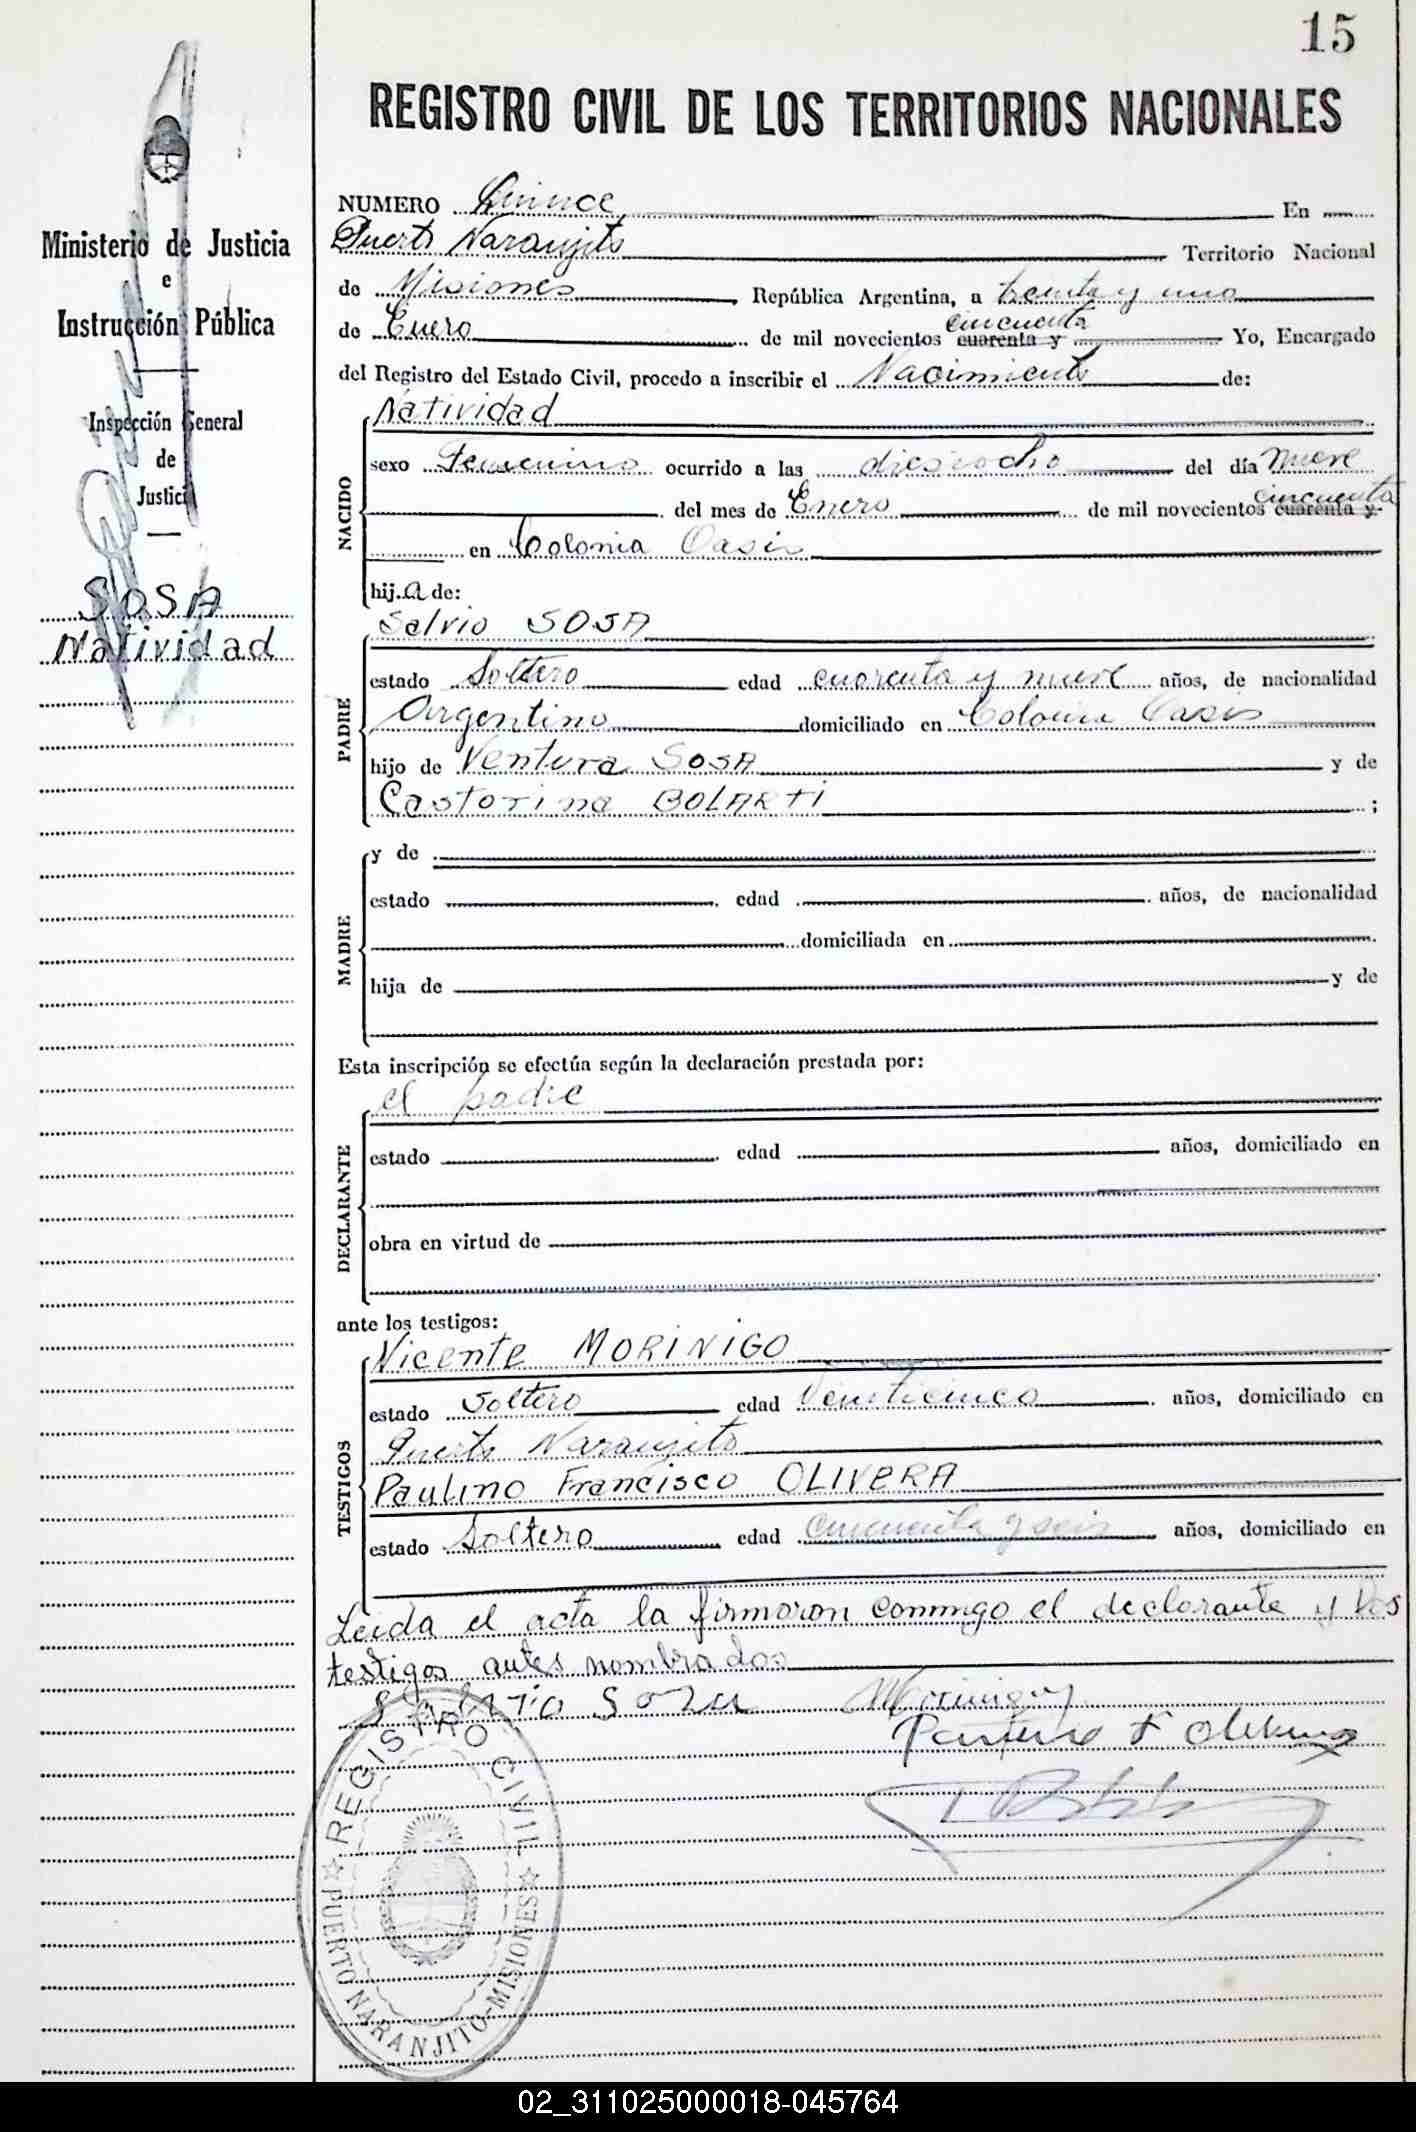 15
REGISTRO CIVIL DE LOS TERRITORIOS NACIONALES
Ministerio de Justicia
e
Instrucción Pública
Inspección General
de
Justicia
SOSA
Natividad
NUMERO Quince En
Puerto Naranjito Territorio Nacional
de Misiones, República Argentina, a treinta y uno
de Enero de mil novecientos cuarenta y cincuenta Yo, Encargado
del Registro del Estado Civil, procedo a inscribir el Nacimiento de:
NACIDO
Natividad
sexo Femenino ocurrido a las diesiocho del día nueve
del mes de Enero de mil novecientos cuarenta y cincuenta
en Colonia Oasis
hija de:
PADRE
Salvio SOSA
estado Soltero edad cuarenta y nueve años, de nacionalidad
Argentino domiciliado en Colonia Oasis
hijo de Ventura SOSA y de
Castorina BOLARTI ;
MADRE
y de
estado , edad años, de nacionalidad
domiciliada en
hija de y de
Esta inscripción se efectúa según la declaración prestada por:
DECLARANTE
el padre
estado , edad años, domiciliado en
obra en virtud de
ante los testigos:
TESTIGOS
Vicente MORINIGO
estado Soltero edad Veinticinco años, domiciliado en
Puerto Naranjito
Paulino Francisco OLIVERA
estado Soltero edad cincuenta y seis años, domiciliado en
Leida el acta la firmaron conmigo el declarante y los
testigos antes nombrados
REGISTRO CIVIL
PUERTO NARANJITO-MISIONES
02_311025000018-045764